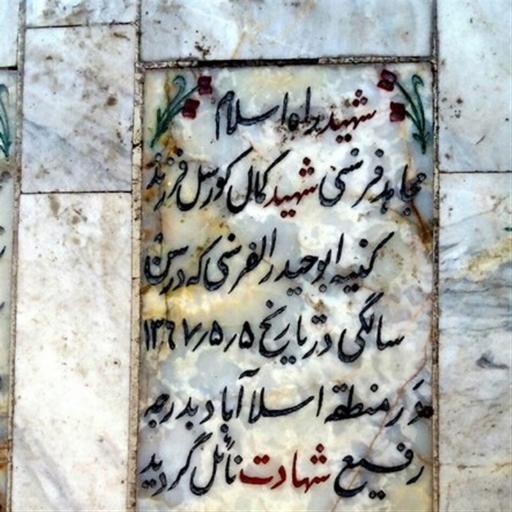 شهید راه اسلام
مجاهد فرنسی شهید کمال کورسل فرزند
کنیه ابوحیدر الفرنسی که در سن
سالگی در تاریخ ۱۳۶۷٫۵٫۵
در منطقه اسلام آباد بدرجه
رفیع شهادت نائل گردید